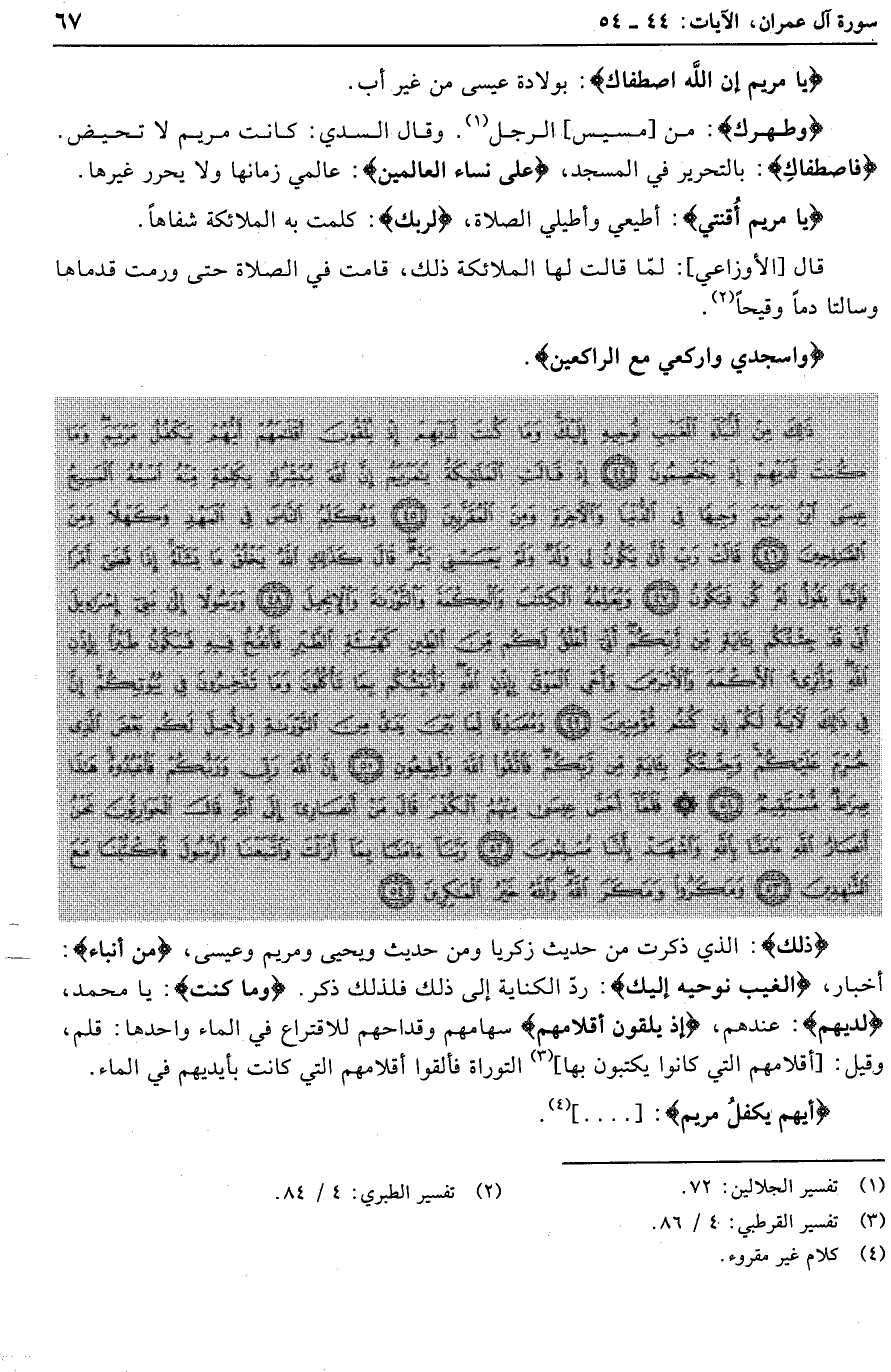 سورة آل عمران، الآيات: ٤٤ ـ ٥٤ ٦٧
﴿يا مريم إن اللَّه اصطفاك﴾: بولادة عيسى من غير أب.
﴿وطهرك﴾: من [مسيس] الرجل(١). وقال السدي: كانت مريم لا تحيض.
﴿فاصطفاكِ﴾: بالتحرير في المسجد، ﴿على نساء العالمين﴾: عالمي زمانها ولا يحرر غيرها.
﴿يا مريم أُقنتي﴾: أطيعي وأطيلي الصلاة، ﴿لربك﴾: كلمت به الملائكة شفاهاً.
قال [الأوزاعي]: لمّا قالت لها الملائكة ذلك، قامت في الصلاة حتى ورمت قدماها
وسالتا دماً وقيحاً(٢).
﴿واسجدي واركعي مع الراكعين﴾.
ذَٰلِكَ مِنْ أَنۢبَآءِ ٱلْغَيْبِ نُوحِيهِ إِلَيْكَ وَمَا كُنتَ لَدَيْهِمْ إِذْ يُلْقُونَ أَقْلَٰمَهُمْ أَيُّهُمْ يَكْفُلُ مَرْيَمَ وَمَا
كُنتَ لَدَيْهِمْ إِذْ يَخْتَصِمُونَ ٤٤ إِذْ قَالَتِ ٱلْمَلَٰٓئِكَةُ يَٰمَرْيَمُ إِنَّ ٱللَّهَ يُبَشِّرُكِ بِكَلِمَةٍ مِّنْهُ ٱسْمُهُ ٱلْمَسِيحُ
عِيسَى ٱبْنُ مَرْيَمَ وَجِيهًا فِى ٱلدُّنْيَا وَٱلْءَاخِرَةِ وَمِنَ ٱلْمُقَرَّبِينَ ٤٥ وَيُكَلِّمُ ٱلنَّاسَ فِى ٱلْمَهْدِ وَكَهْلًا وَمِنَ
ٱلصَّٰلِحِينَ ٤٦ قَالَتْ رَبِّ أَنَّىٰ يَكُونُ لِى وَلَدٌ وَلَمْ يَمْسَسْنِى بَشَرٌ قَالَ كَذَٰلِكِ ٱللَّهُ يَخْلُقُ مَا يَشَآءُ إِذَا قَضَىٰٓ أَمْرًا
فَإِنَّمَا يَقُولُ لَهُۥ كُن فَيَكُونُ ٤٧ وَيُعَلِّمُهُ ٱلْكِتَٰبَ وَٱلْحِكْمَةَ وَٱلتَّوْرَىٰةَ وَٱلْإِنجِيلَ ٤٨ وَرَسُولًا إِلَىٰ بَنِىٓ إِسْرَٰٓءِيلَ
أَنِّى قَدْ جِئْتُكُم بِـَٔايَةٍ مِّن رَّبِّكُمْ أَنِّىٓ أَخْلُقُ لَكُم مِّنَ ٱلطِّينِ كَهَيْـَٔةِ ٱلطَّيْرِ فَأَنفُخُ فِيهِ فَيَكُونُ طَيْرًۢا بِإِذْنِ
ٱللَّهِ وَأُبْرِئُ ٱلْأَكْمَهَ وَٱلْأَبْرَصَ وَأُحْىِ ٱلْمَوْتَىٰ بِإِذْنِ ٱللَّهِ وَأُنَبِّئُكُم بِمَا تَأْكُلُونَ وَمَا تَدَّخِرُونَ فِى بُيُوتِكُمْ إِنَّ
فِى ذَٰلِكَ لَءَايَةً لَّكُمْ إِن كُنتُم مُّؤْمِنِينَ ٤٩ وَمُصَدِّقًا لِّمَا بَيْنَ يَدَىَّ مِنَ ٱلتَّوْرَىٰةِ وَلِأُحِلَّ لَكُم بَعْضَ ٱلَّذِى
حُرِّمَ عَلَيْكُمْ وَجِئْتُكُم بِـَٔايَةٍ مِّن رَّبِّكُمْ فَٱتَّقُوا۟ ٱللَّهَ وَأَطِيعُونِ ٥٠ إِنَّ ٱللَّهَ رَبِّى وَرَبُّكُمْ فَٱعْبُدُوهُ هَٰذَا
صِرَٰطٌ مُّسْتَقِيمٌ ٥١ ۞ فَلَمَّآ أَحَسَّ عِيسَىٰ مِنْهُمُ ٱلْكُفْرَ قَالَ مَنْ أَنصَارِىٓ إِلَى ٱللَّهِ قَالَ ٱلْحَوَارِيُّونَ نَحْنُ
أَنصَارُ ٱللَّهِ ءَامَنَّا بِٱللَّهِ وَٱشْهَدْ بِأَنَّا مُسْلِمُونَ ٥٢ رَبَّنَآ ءَامَنَّا بِمَآ أَنزَلْتَ وَٱتَّبَعْنَا ٱلرَّسُولَ فَٱكْتُبْنَا مَعَ
ٱلشَّٰهِدِينَ ٥٣ وَمَكَرُوا۟ وَمَكَرَ ٱللَّهُ وَٱللَّهُ خَيْرُ ٱلْمَٰكِرِينَ ٥٤
﴿ذلك﴾: الذي ذكرت من حديث زكريا ومن حديث ويحيى ومريم وعيسى، ﴿من أنباء﴾:
أخبار، ﴿الغيب نوحيه إليك﴾: ردّ الكناية إلى ذلك فلذلك ذكر. ﴿وما كنت﴾: يا محمد،
﴿لديهم﴾: عندهم، ﴿إذ يلقون أقلامهم﴾ سهامهم وقداحهم للاقتراع في الماء واحدها: قلم،
وقيل: [أقلامهم التي كانوا يكتبون بها](٣) التوراة فألقوا أقلامهم التي كانت بأيديهم في الماء.
﴿أيهم يكفلُ مريم﴾: [. . . .](٤).
(١) تفسير الجلالين: ٧٢. (٢) تفسير الطبري: ٤ / ٨٤.
(٣) تفسير القرطبي: ٤ / ٨٦.
(٤) كلام غير مقروء.